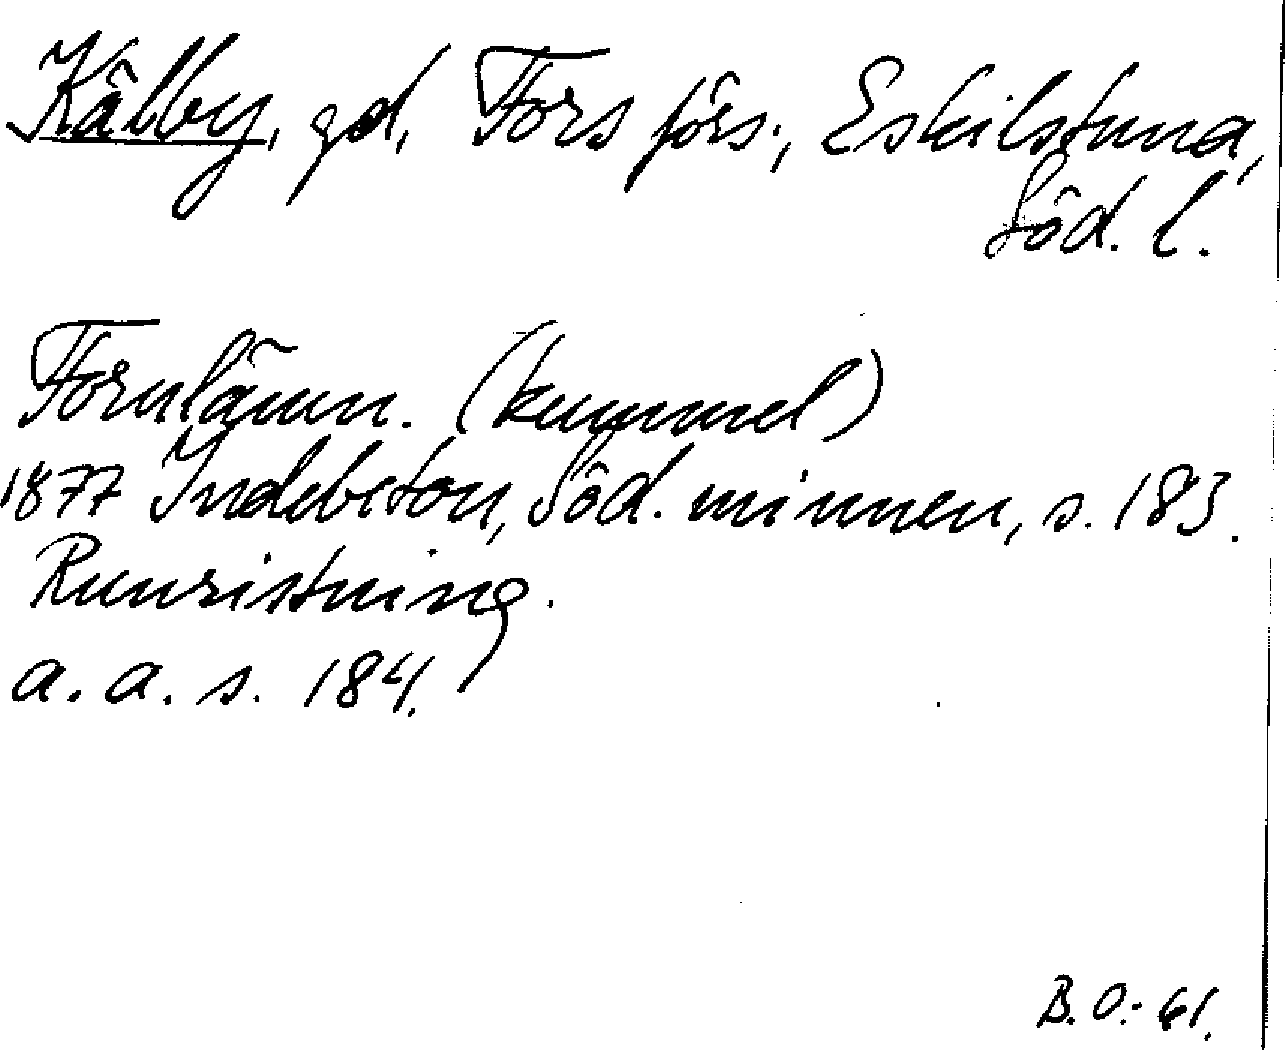 Kälby, gd, Fors förs., Eskilstuna,
Söd. l.
Fornlämn. (kummel)
1877 Indebetou, Söd. minnen, s. 183.
Runristning.
a. a. s. 184.
B. O:- 61.